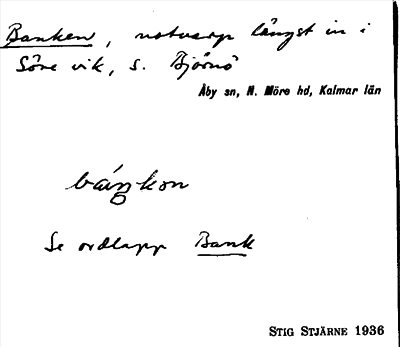 Banken, notvarp längst in i
Söre vik, S. Björnö
Åby sn, N. Möre hd, Kalmar län
báŋkon
Se ordlapp Bank
STIG STJÄRNE 1936